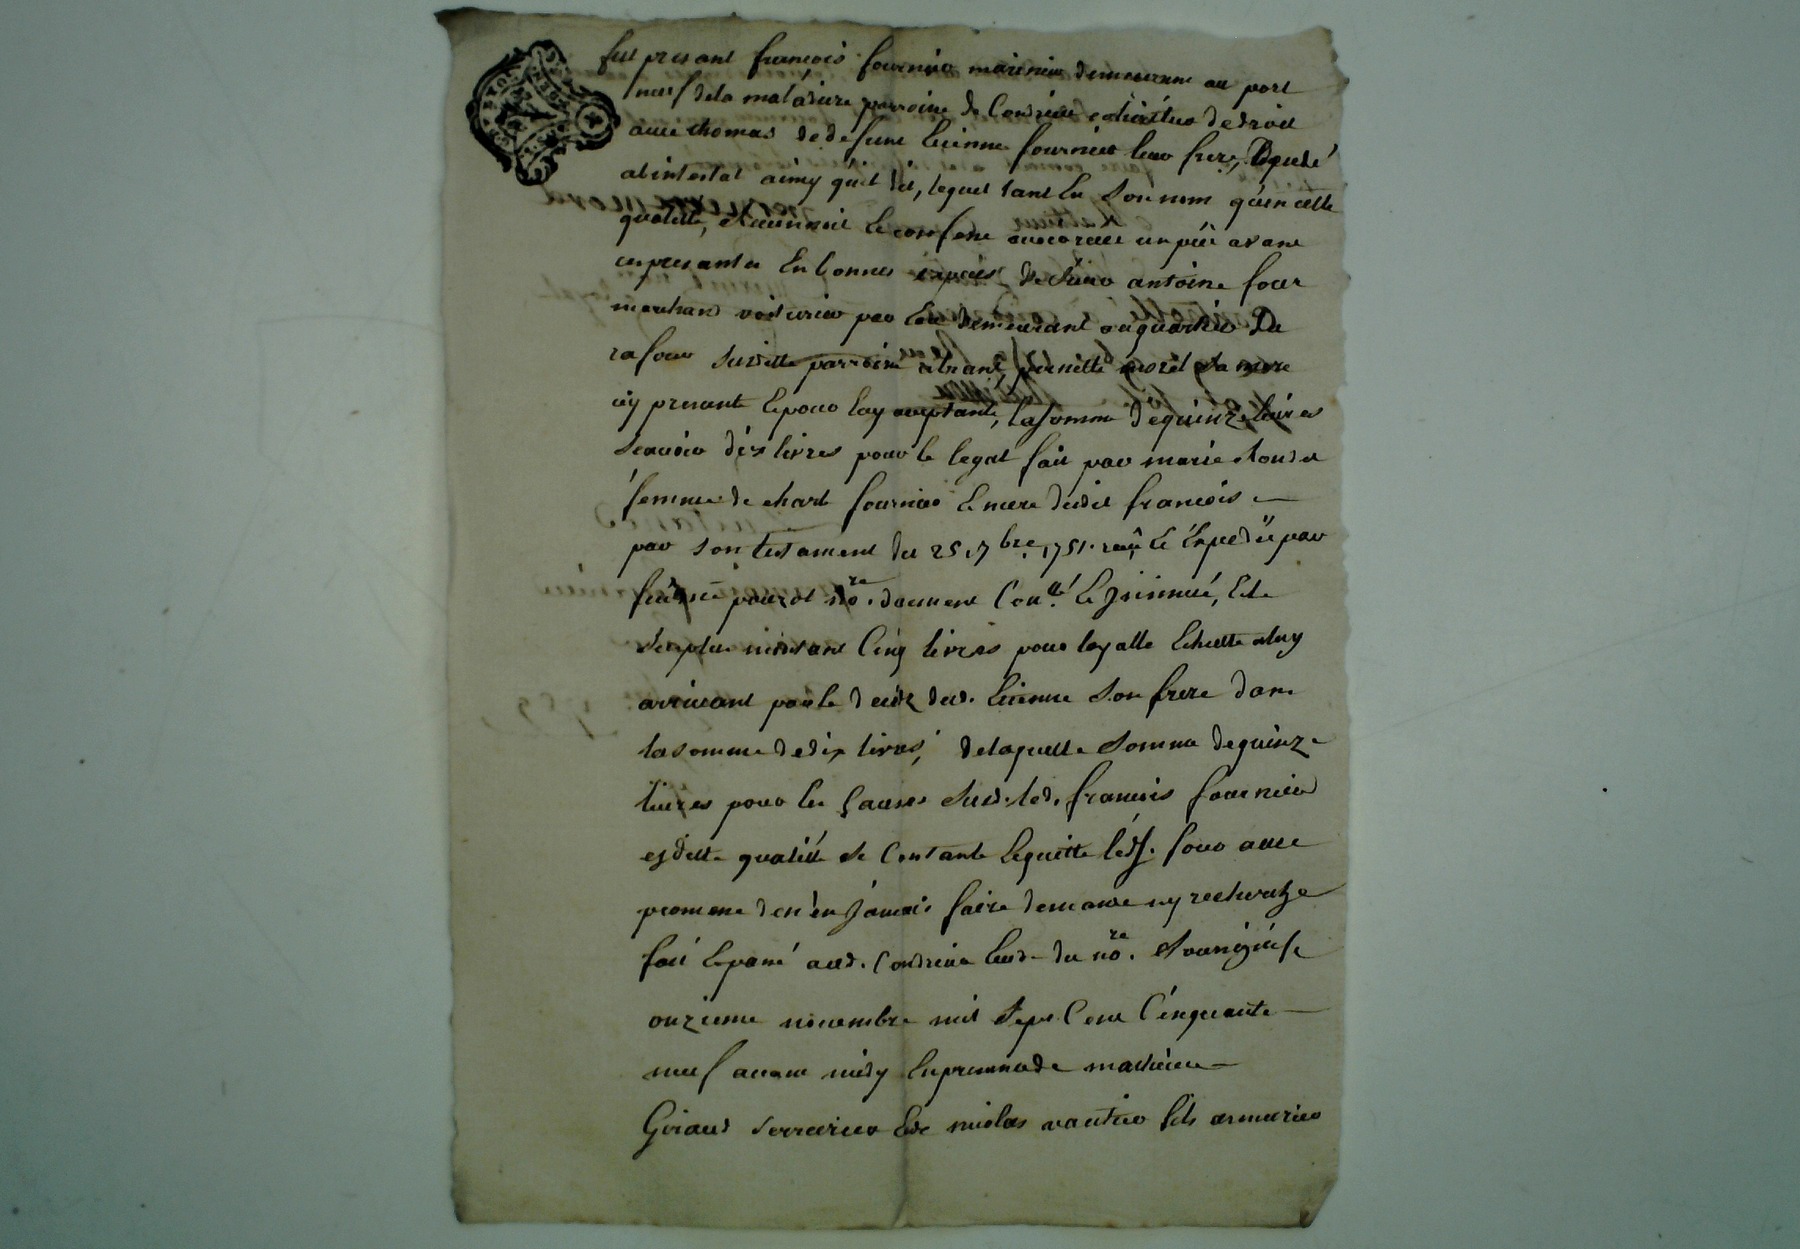 fut presant francois fournier marinier demeurant au port
neuf dela maladiere parroisse de Condrieu cohéritier de droit
avec thomas de defunt Etienne fournier leur frere, decedé
abintestat ainsy quil dit, lequel tant En son nom quen cette
qualitté, reconnoit et confesse avoir receu un peu avant
ces presantes En bonnes especes de sieur antoine four
marchand voiturier par Eau demeurant au quartier De
la four susditte parroisse absant, pernette morel sa mere
icy presante Et pour luy acceptante, la somme de quinze livres
sçavoir dix livres pour le legat fait par marie
femme de charl fournier Et mere dudit francois
par son testament du 25. 7bre. 1751. reçu Et Expedié par
no.re duement Con.llé Et Insinué, Et le
surplus montant Cinq livres pour legalle Echutte a luy
arrivant par le decéz dud. Etienne son frere dans
la somme de dix livres, de laquelle somme de quinze
livres pour les causes susd. led. francois fournier
esditte qualitté se Contante Et quitte led. sr. four avec
promesse den'en Jamais faire demande ny recherche
fait Et passé aud. Condrieu Etude du no.re soussigné le
onzieme novembre mil sept Cent Cinquante
neuf avant midy En presance de mathieu
Giraud serrurier Et de nicolas vautier fils armurier